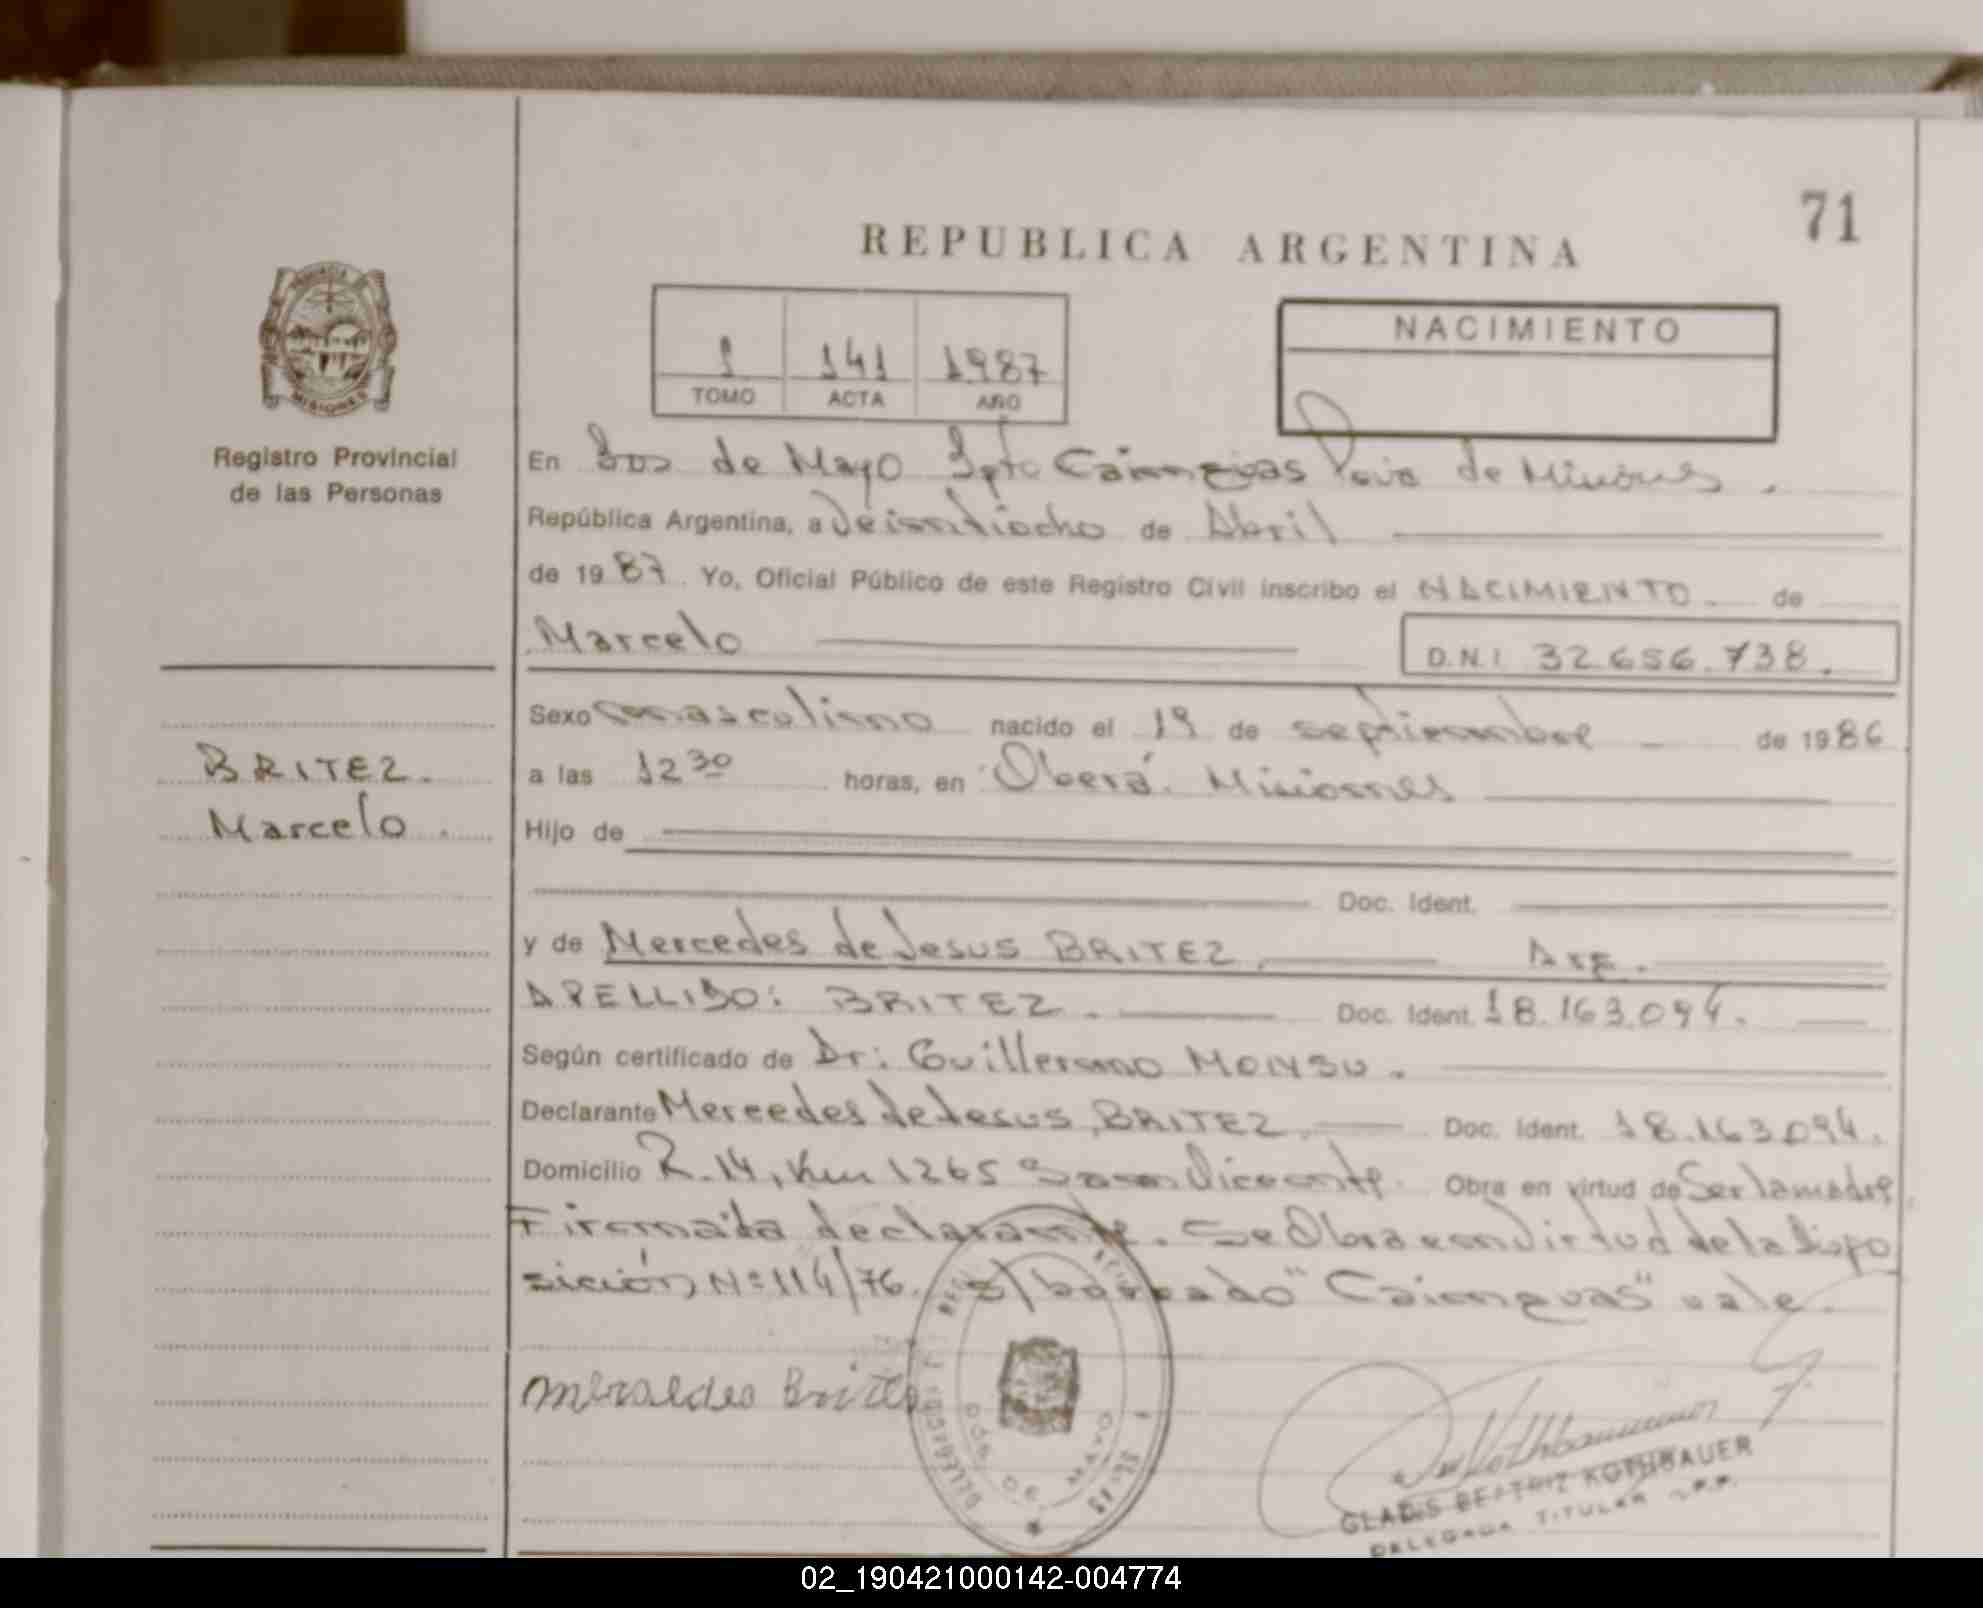 71
REPUBLICA ARGENTINA
PROVINCIA DE MISIONES
Registro Provincial
de las Personas
NACIMIENTO
1 141 1987
TOMO ACTA AÑO
En Dos de Mayo Dpto Cainguas Pcia de Misiones.
República Argentina, a Veintiocho de Abril
de 1987. Yo, Oficial Público de este Registro Civil inscribo el NACIMIENTO de
Marcelo D.N.I. 32.656.738.
Sexo masculino nacido el 19 de septiembre de 1986
BRITEZ.
Marcelo.
a las 12 30 horas, en Oberá. Misiones
Hijo de
Doc. Ident.
y de Mercedes de Jesus BRITEZ. Arg.
APELLIDO: BRITEZ. Doc. Ident. 18.163.094.
Según certificado de Dr: Guillermo
Declarante Mercedes de Jesus, BRITEZ. Doc. Ident. 18.163.094.
Domicilio R.14, Km 1265 San Vicente. Obra en virtud de Ser la madre
Firma la declarante. Se Obra en Virtud de la Dispo
sición Nº 114/76. s/borrado "Cainguas" vale.
Mercedes Britez
DOS DE MAYO
GLADIS BEATRIZ KOTHBAUER
DELEGADA TITULAR R.P.P.
02_190421000142-004774